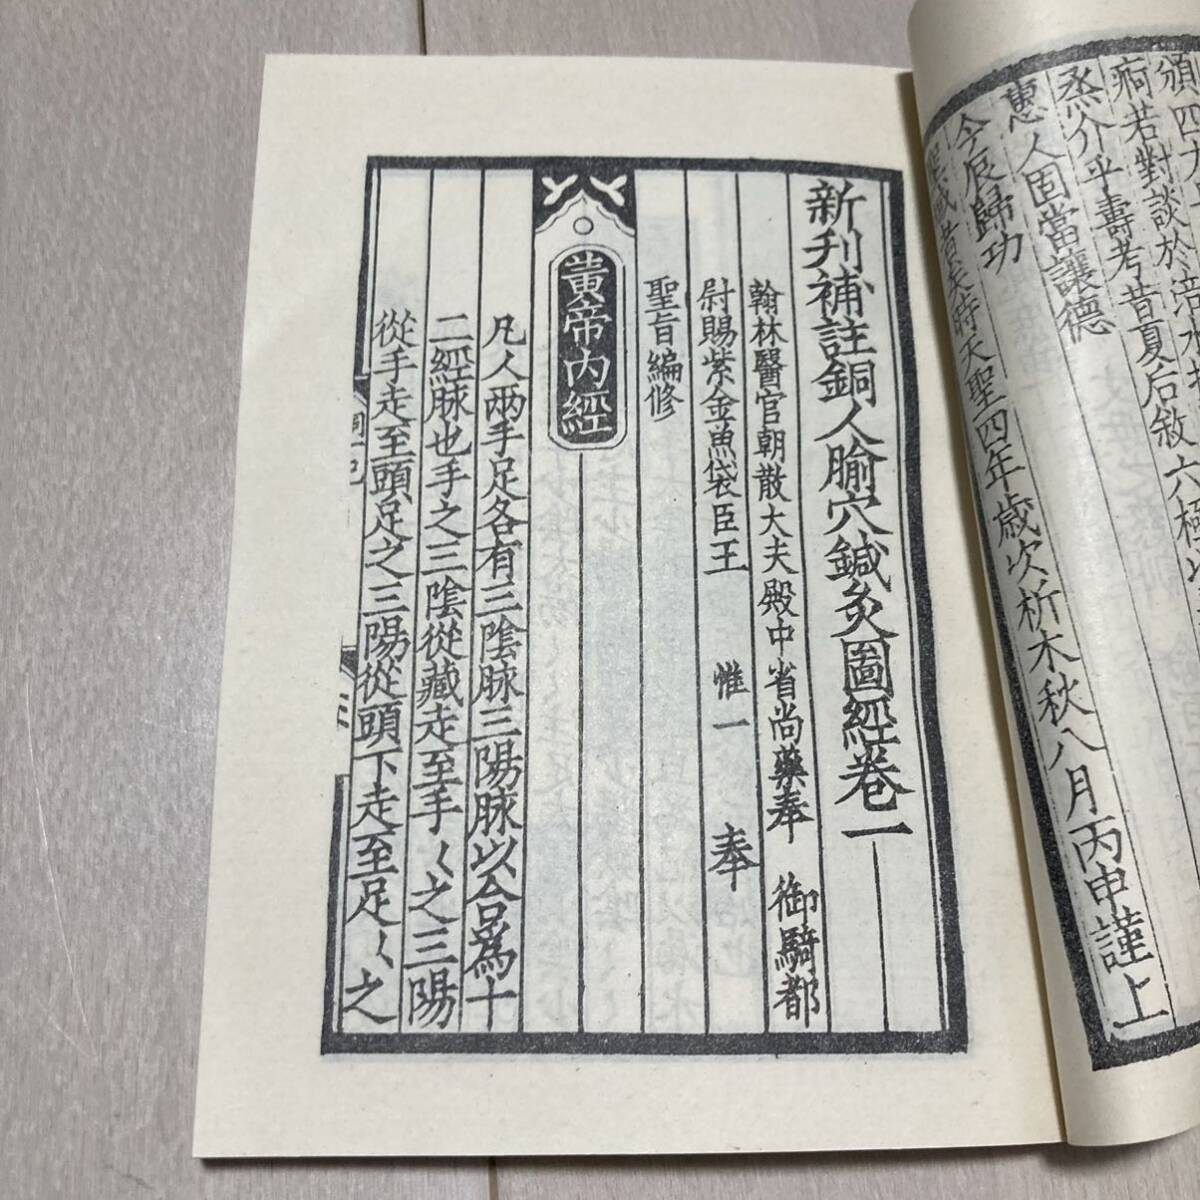 頒四方
痾若對談於帝
烝介乎壽考昔夏后敘六極以
惠人固當讓德
今辰歸功
聖時天聖四年歲次析木秋八月丙申謹上
新刋補註銅人腧穴鍼灸圖經卷一
翰林醫官朝散大夫殿中省尚藥奉御騎都
尉賜紫金魚袋臣王惟一奉
聖旨編修
黃帝內經
凡人兩手足各有三陰脉三陽脉以合爲十
二經脉也手之三陰從藏走至手〻之三陽
從手走至頭足之三陽從頭下走至足〻之